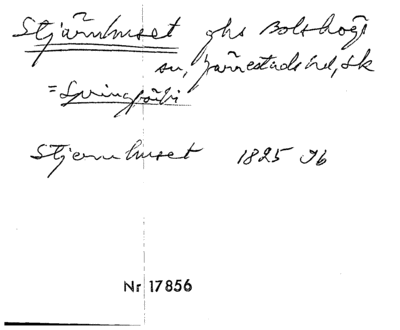 Stjärnhuset ghs Bolshögs
sn, Järrestads hd, Sk
= Springfåhi
Stjernhuset 1825 Jb
Nr 17856